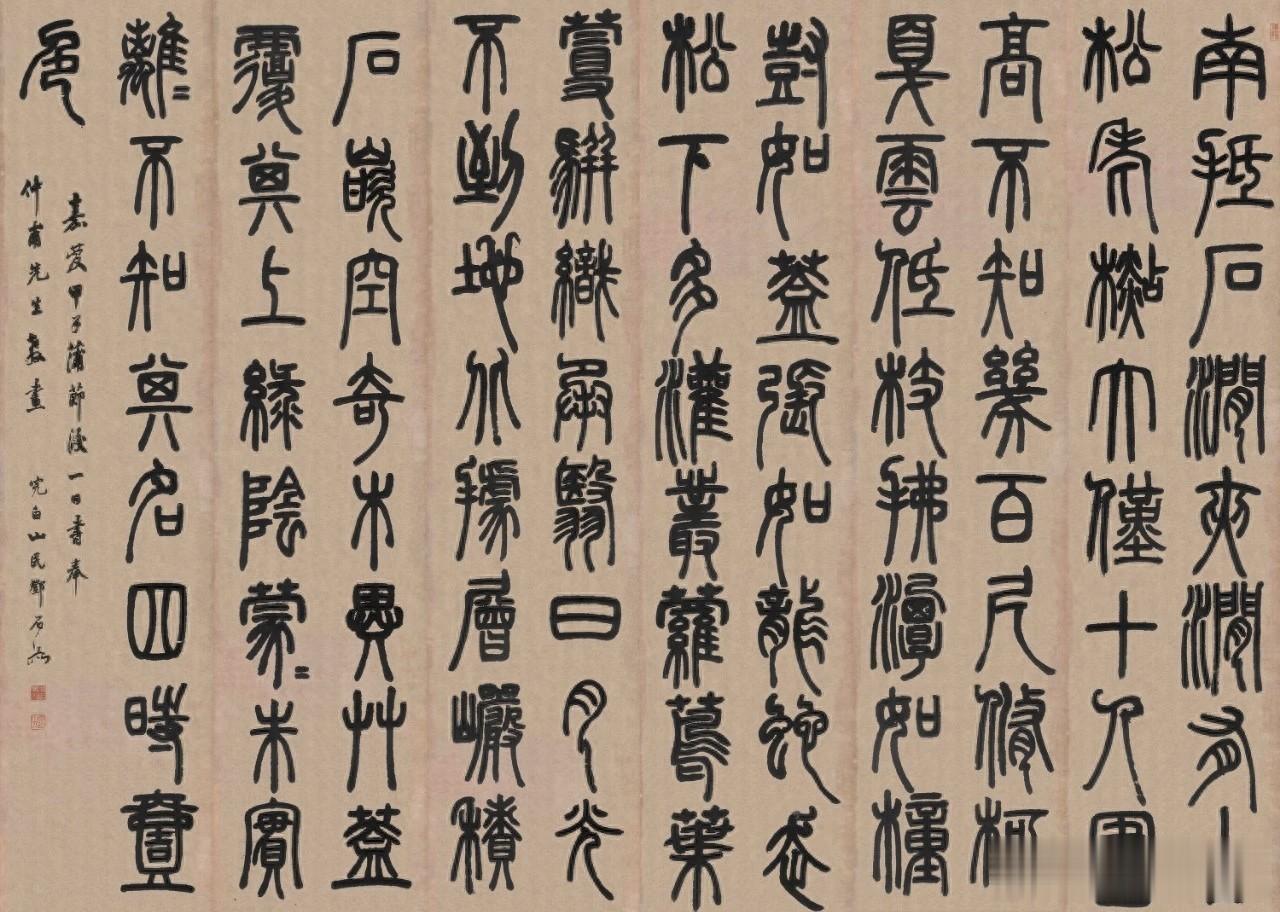 南抵石澗夾澗有
松老檆大僅十人圍
高不知幾百尺脩柯
戛雲低枝拂潭如橦
尌如蓋張如龍蛇走
松下多灌叢蘿蔦葉
蔓騈織承翳日月光
不到地北據層巖積
石嵌空奇木異艸蓋
覆其上綠陰蒙〻朱實
離〻不知其名四時壹
色
嘉慶甲子蒲節後一日書奉
仲甫先生教畫 完白山民鄧石如